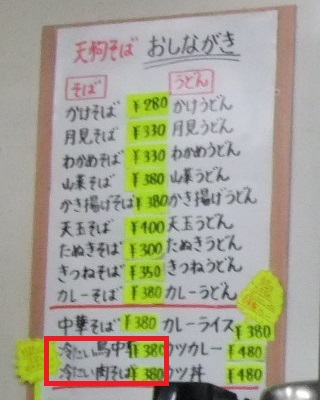 天狗そば おしながき
そば うどん
かけそば ¥280 かけうどん
月見そば ¥330 月見うどん
わかめそば ¥330 わかめうどん
山菜そば ¥380 山菜うどん
かき揚げそば ¥380 かき揚げうどん
天玉そば ¥400 天玉うどん
たぬきそば ¥300 たぬきうどん
きつねそば ¥350 きつねうどん
カレーそば ¥380 カレーうどん
中華そば ¥380 カレーライス ¥380
冷たい鳥中華 ¥380 カツカレー ¥480
冷たい肉そば ¥380 カツ丼 ¥480